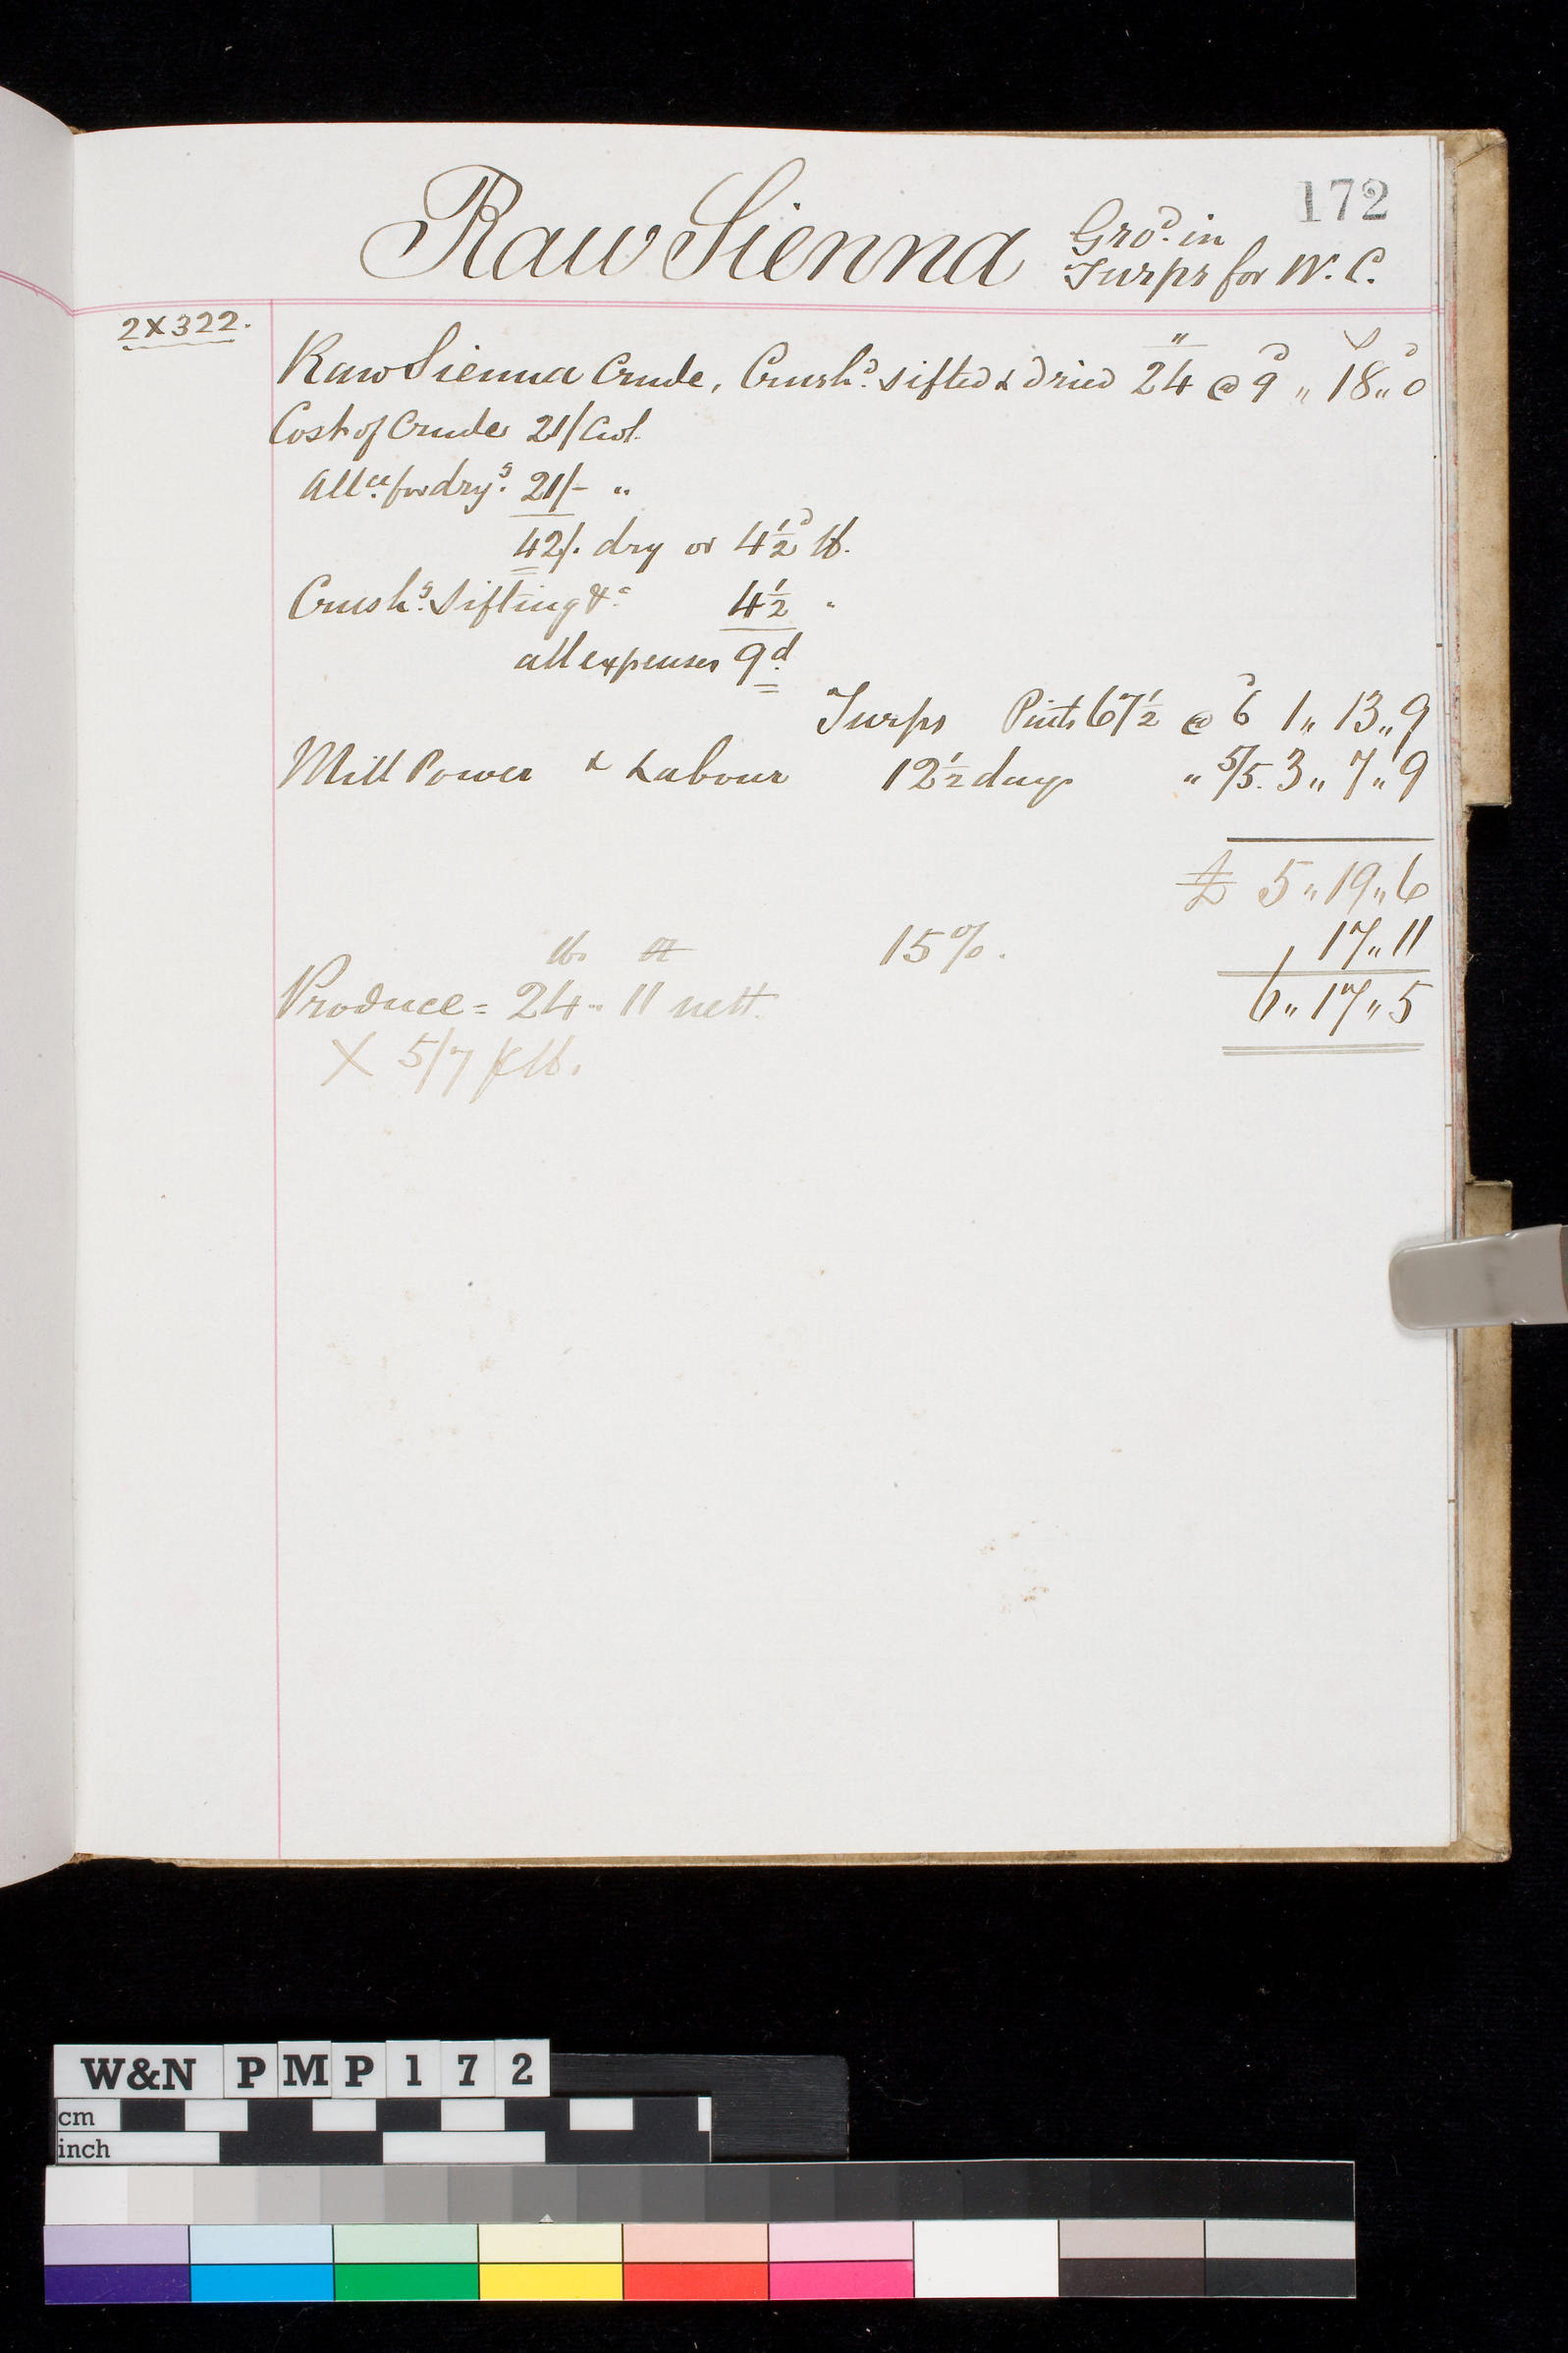 172
Raw Sienna Gro.d in
Turps for W. C.
2X322.
Raw Sienna Crude, Crush.d sifted & dried 24 @ 9d " 18 " 0
Cost of Crude 21/ Cwt.
All.ce for dry.g 21/- "
42/. dry or 4½d lb.
Crush.g Sifting &c 4½ "
all expenses 9d
Turps Pints 67½ @ 6d 1 " 13 " 9
Mill Power & Labour 12½ days " 5/5. 3 " 7 " 9
£ 5 " 19 " 6
15%. 17 " 11
lb. oz
Produce = 24 - 11 nett. 6 " 17 " 5
X 5/7 ⅌ lb.
W&N PMP172
cm
inch